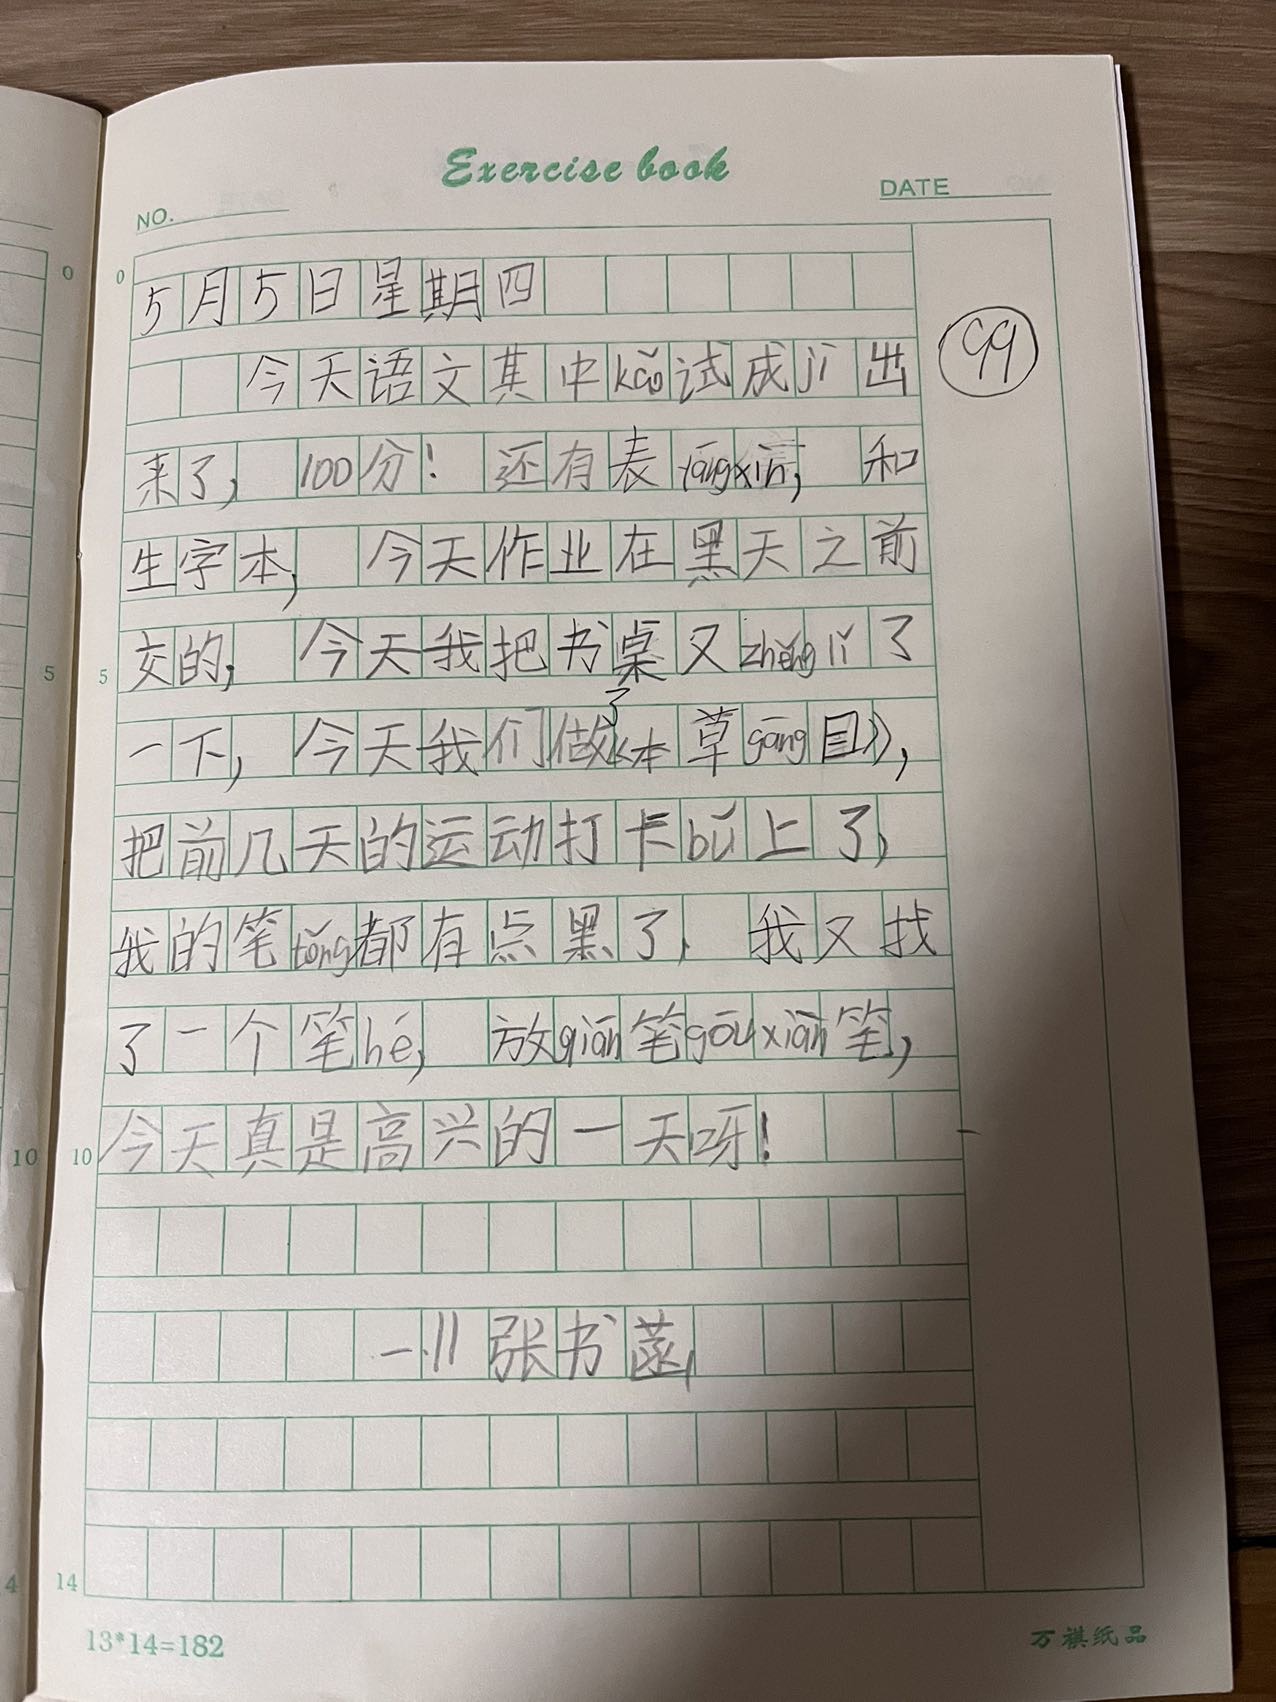 Exercise book
NO.
DATE
0
0
5月5日星期四
99
今天语文其中kǎo试成jì出
来了，100分！还有表yángxìn，和
生字本，今天作业在黑天之前
5
5
交的，今天我把书桌又zhěnglǐ了
一下，今天我们做了《本草gāng目》，
把前几天的运动打卡bǔ上了，
我的笔tǒng都有点黑了，我又找
了一个笔hé，放qiān笔gōuxiàn笔，
10
10
今天真是高兴的一天呀！
张书菡
4
14
13*14=182
万祺纸品